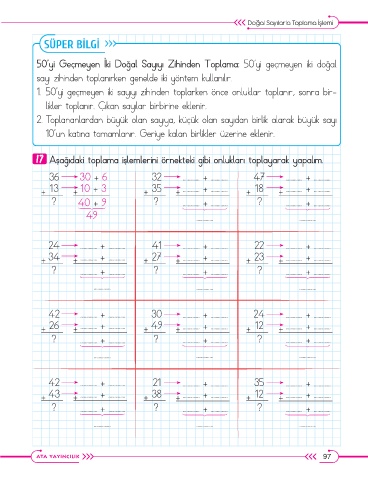 Doğal Sayılarla Toplama İşlemi
SÜPER BİLGİ
50'yi Geçmeyen İki Doğal Sayıyı Zihinden Toplama: 50'yi geçmeyen iki doğal
sayı zihinden toplanırken genelde iki yöntem kullanılır.
1. 50'yi geçmeyen iki sayıyı zihinden toplarken önce onluklar toplanır, sonra bir-
likler toplanır. Çıkan sayılar birbirine eklenir.
2. Toplananlardan büyük olan sayıya, küçük olan sayıdan birlik alarak büyük sayı
10'un katına tamamlanır. Geriye kalan birlikler üzerine eklenir.
17 Aşağıdaki toplama işlemlerini örnekteki gibi onlukları toplayarak yapalım.
36 30 + 6 32 ........ + ........ 47 ........ + ........
+ 13 + 10 + 3 + 35 + ........ + ........ + 18 + ........ + ........
? 40 + 9 ? ........ + ........ ? ........ + ........
49 ........ ........
24 ........ + ........ 41 ........ + ........ 22 ........ + ........
+ 34 + ........ + ........ + 27 + ........ + ........ + 23 + ........ + ........
? ........ + ........ ? ........ + ........ ? ........ + ........
........ ........ ........
42 ........ + ........ 30 ........ + ........ 24 ........ + ........
+ 26 + ........ + ........ + 49 + ........ + ........ + 12 + ........ + ........
? ........ + ........ ? ........ + ........ ? ........ + ........
........ ........ ........
42 ........ + ........ 21 ........ + ........ 35 ........ + ........
+ 43 + ........ + ........ + 38 + ........ + ........ + 12 + ........ + ........
? ........ + ........ ? ........ + ........ ? ........ + ........
........ ........ ........
ATA YAYINCILIK 97